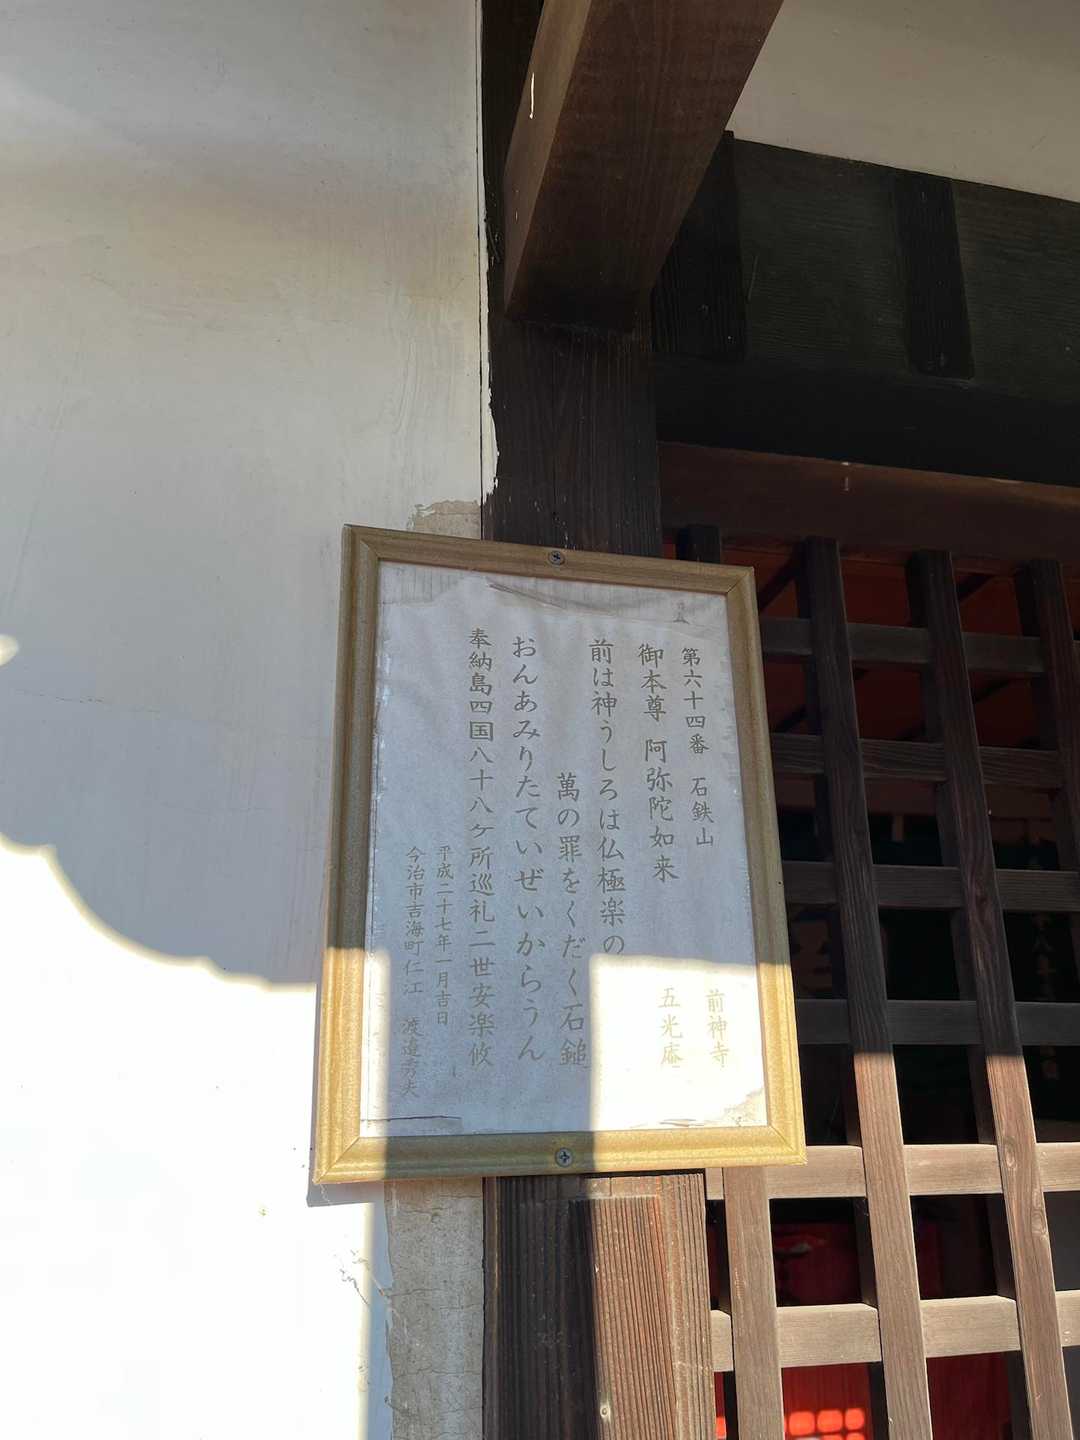 第六十四番　石鉄山　前神寺
御本尊　阿弥陀如来　五光庵
前は神うしろは仏極楽の
萬の罪をくだく石鎚
おんあみりたていぜいからうん
奉納島四国八十八ヶ所巡礼二世安楽攸
平成二十七年一月吉日
今治市吉海町仁江　渡邉秀夫